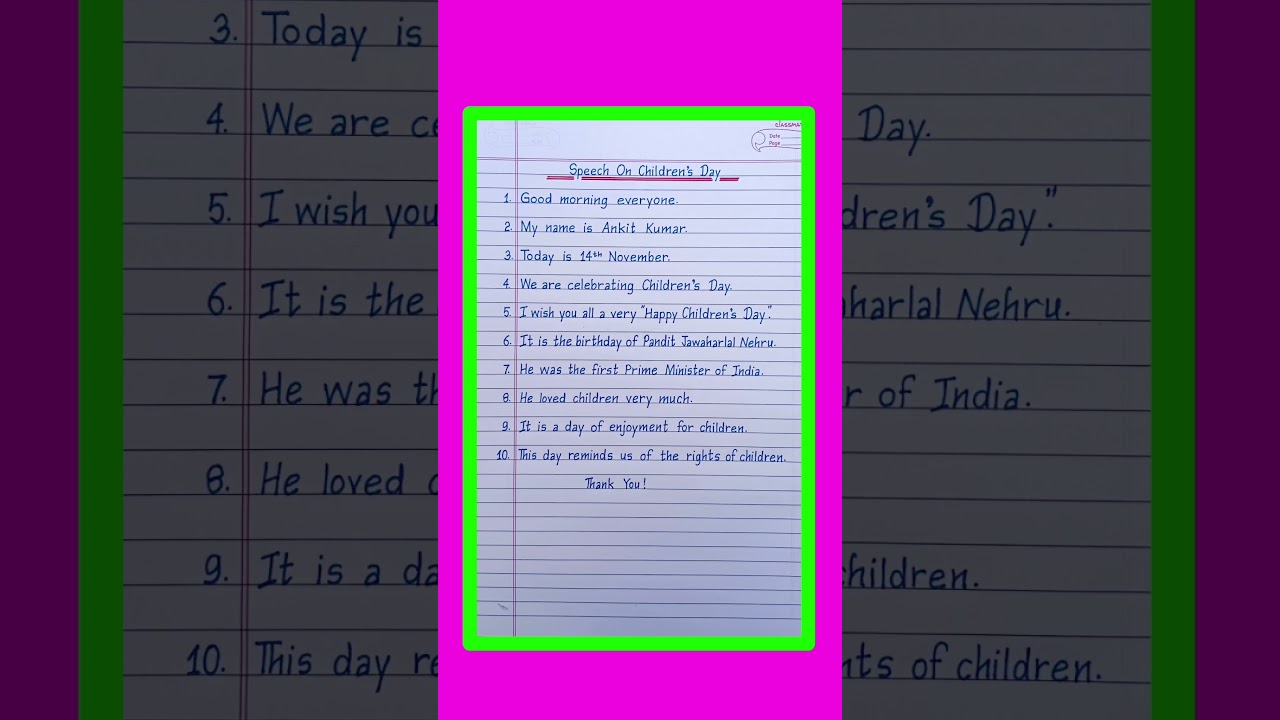 CLASSMA
Date
Page
Speech On Children's Day
1. Good morning everyone.
2. My name is Ankit Kumar.
3. Today is 14th November.
4. We are celebrating Children's Day.
5. I wish you all a very "Happy Children's Day".
6. It is the birthday of Pandit Jawaharlal Nehru.
7. He was the first Prime Minister of India.
8. He loved children very much.
9. It is a day of enjoyment for children.
10. This day reminds us of the rights of children.
Thank You!
3. Today is
4. We are ce
Day.
5. I wish you
dren's Day".
6. It is the
harlal Nehru.
7. He was th
r of India.
8. He loved
9. It is a da
children.
10. This day re
hts of children.